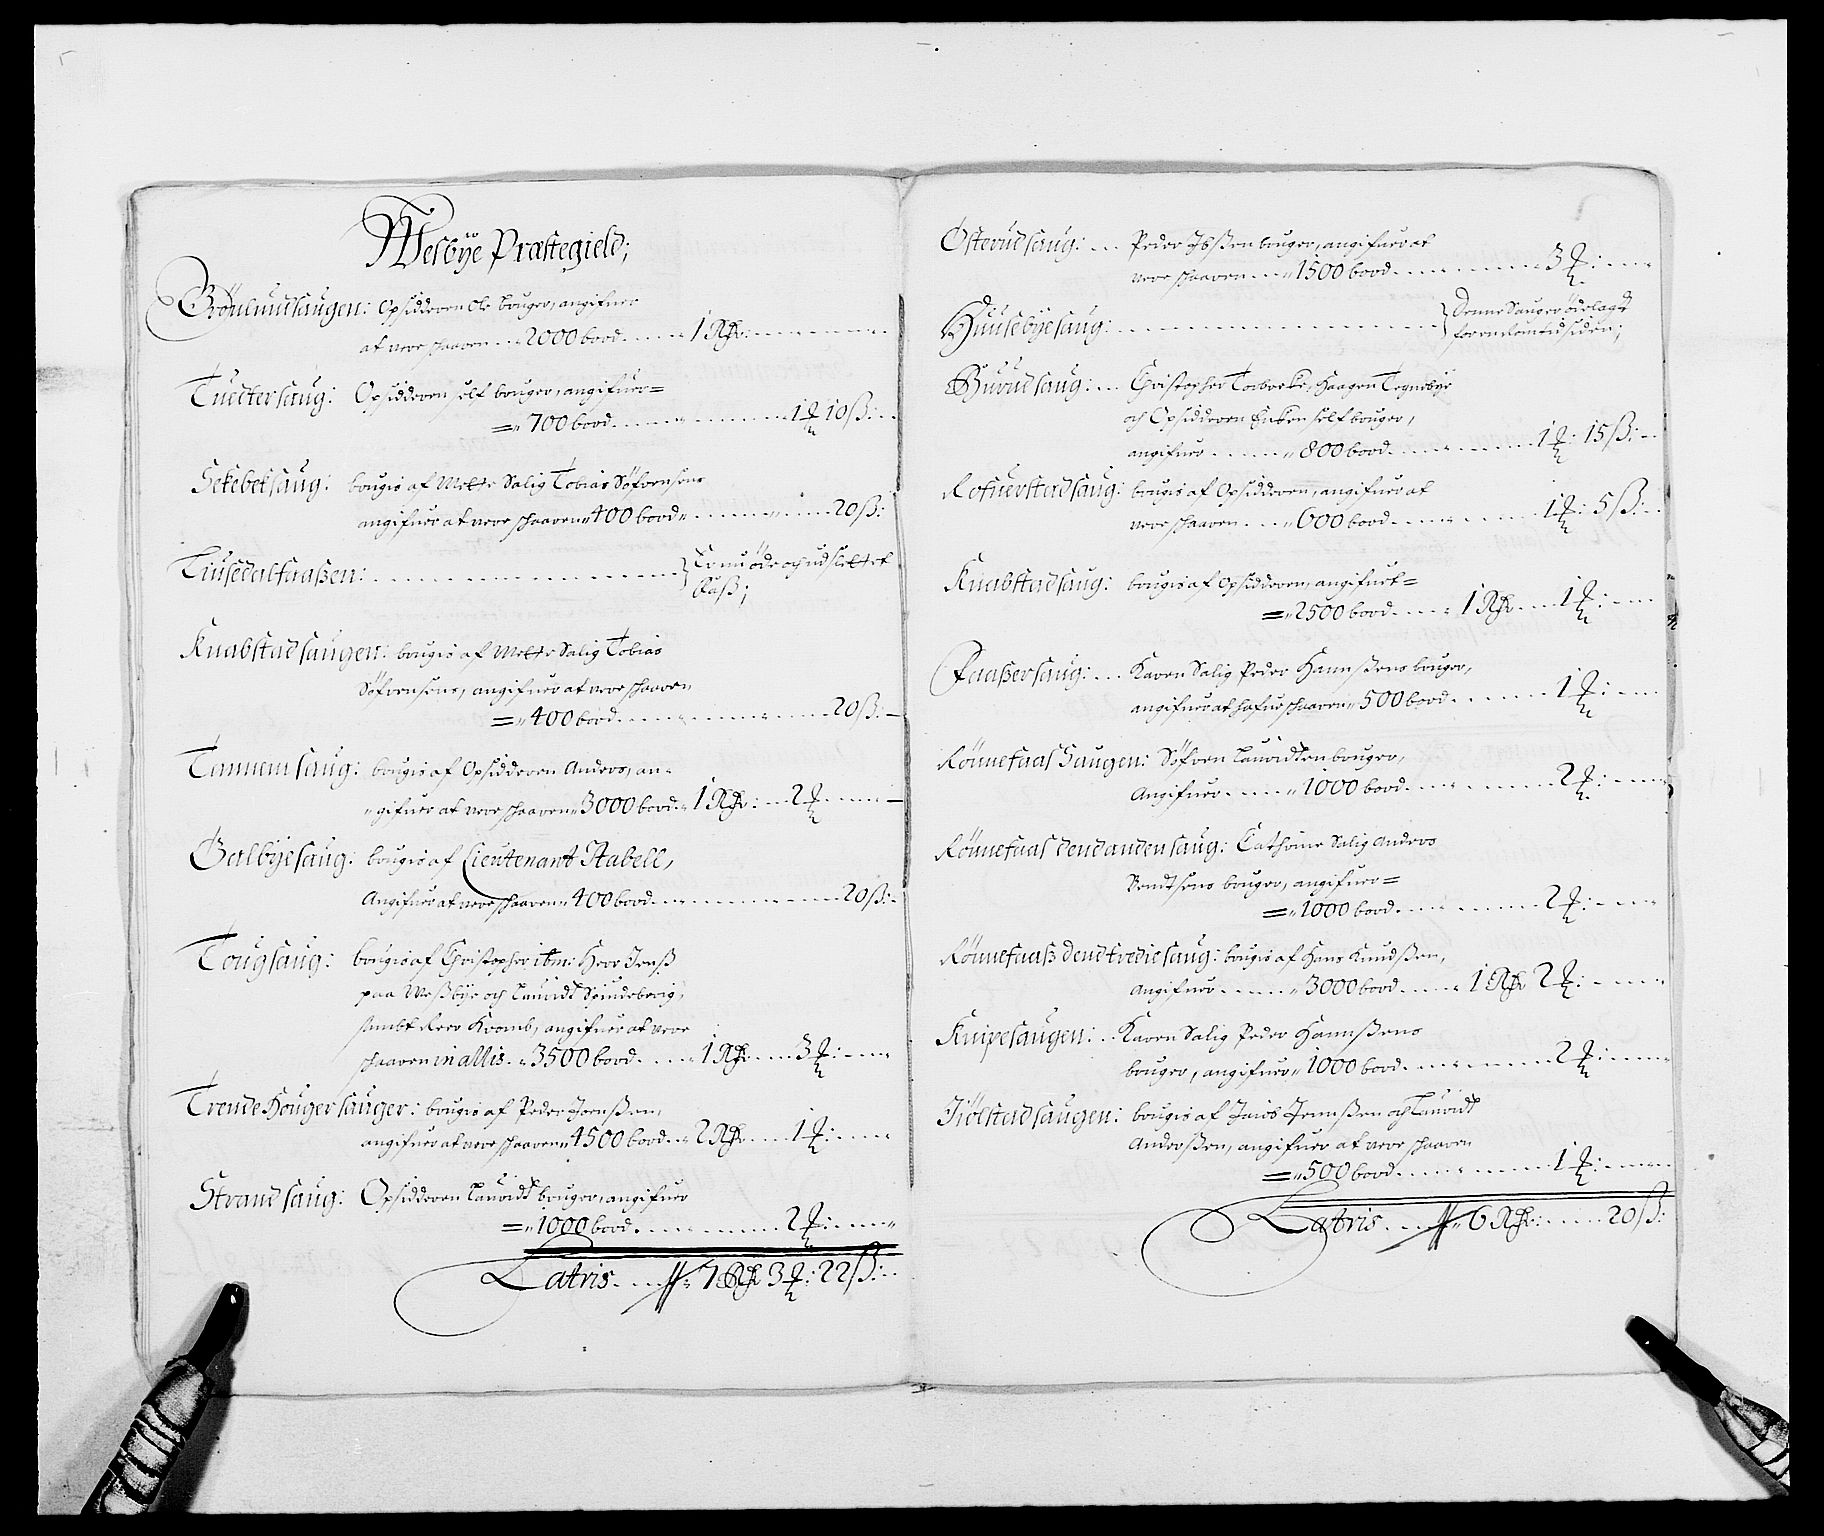 Wesbÿe Præstegield;
Grönlundsaugen: Opsidderen Ole bruger, angifuer
at vere schaaren .. 2000 bord ..... 1 Rdr: ........
Tuetersaug: Opsidderen self bruger, angifuer =
= 700 bord ........ 1 ƺ 10 ß: ..
Sekebeksaug: brugis af Mette Salig Tobias Söfrensens
angifuer at vere schaaren 400 bord ........ 20 ß:
Tiusedalsaaßen: ........ } Er nu öde och udslettet
Knabstadsaugen: brugis af Mette Salig Tobias
Söfrensens, angifuer at vere schaaren
= 400 bord ........ 20 ß: —
Tannemsaug: brugis af Opsidderen Anders, an-
gifuer at vere schaaren 3000 bord 1 Rdr: .. 2 ƺ ....
Galbÿesaug: brugis af Lieutenant Stabell,
Angifuer at vere schaaren 400 bord ........ 20 ß: -
Tougsaug: brugis af Christopher ibn: Herr Jenß
paa Weßbÿe och Lauridt Spindeberig,
sambt Peer Kromb, angifuer at vere
schaaren in allis .. 3500 bord ..... 1 Rdr .... 3 ƺ: ....
Trende Hougersauger: brugis af Peder Joenßen,
angifuer at vere schaaren 4500 bord .. 2 Rdr .... 1 ƺ: ....
Strandsaug: Opsidderen Lauridt bruger, angifuer
= 1000 bord ........ 2 ƺ: ....
Latris .... 7 Rdr 3 ƺ: 22 ß: ..
Österudsaug: ... Peder Ibßen bruger, angifuer at
vere schaaren .... 1500 bord ........ 3 ƺ: ....
Huusebÿesaug: ........ } Denne Sauger ödelagdt
Buerudsaug: ... Christopher Torberke, Haagen Tegnebÿe
och Opsidderen Enken self bruger,
angifuer ...... 800 bord ........ 1 ƺ: 15 ß: ..
Rosuerstadsaug: brugis af Opsidderen, angifuer at
vere schaaren .... 600 bord ........ 1 ƺ: 5 ß: ..
Knabstadsaug: brugis af Opsidderen, angifuet =
= 2500 bord ..... 1 Rdr .... 1 ƺ: ....
Faaßersaug: ... Karen Salig Peder Hannßens bruger,
angifuer at hafue schaaren 500 bord ...... 1 ƺ: ....
Rönnesaas Saugen: Söfren Lauridtzen bruger,
Angifuer ...... 1000 bord ........ 2 ƺ: ....
Rönnesaas dend anden saug: Cathrine Salig Anders
Bendtsens bruger, angifuer =
= 1000 bord ........ 2 ƺ: ....
Rönnesaaß dend tredie saug: brugis af Hans Knudßen,
Angifuer ...... 3000 bord ..... 1 Rdr 2 ƺ: ....
Knipesaugen: .. Karen Salig Peder Hannßens
bruger, angifuer 1000 bord ........ 2 ƺ: ....
Jiölstadsaugen: brugis af Jens Jennßen och Lauridt
Anderßen, angifuer at vere schaaren
= 500 bord ........ 1 ƺ: ....
Latris .... 6 Rdr: ..... 20 ß: